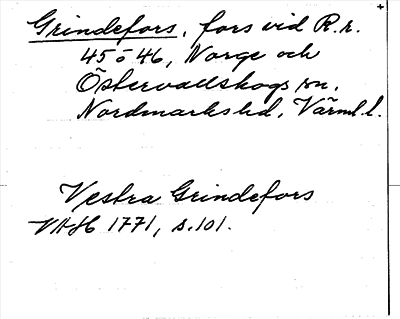 Grindefors, fors vid R.r.
45 o 46, Norge och
Östervallskogs sn,
Nordmarks hd, Värml. l.
Vestra Grindefors
VAH 1771, s. 101.